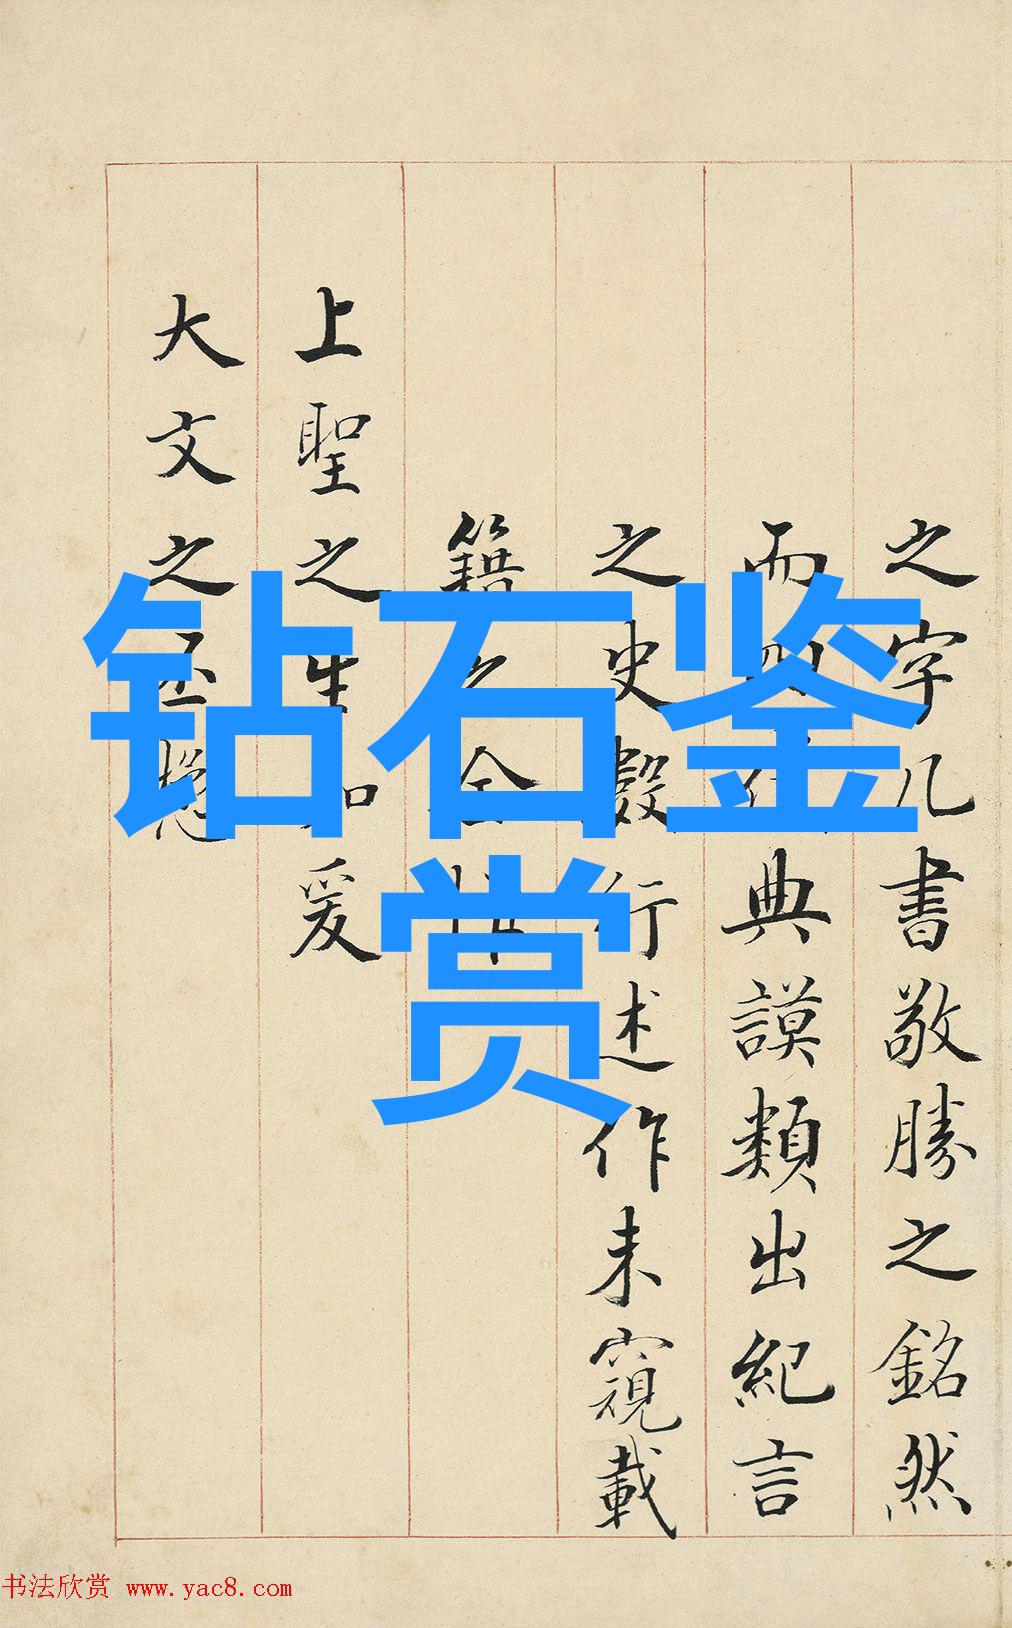 钻石鉴
赏
之字几書敬勝之銘然
而四典謨類出紀言
之史行述作未窺載
籍之全
上聖之生知爰
大文之丕
书法欣赏 www.yac8.com